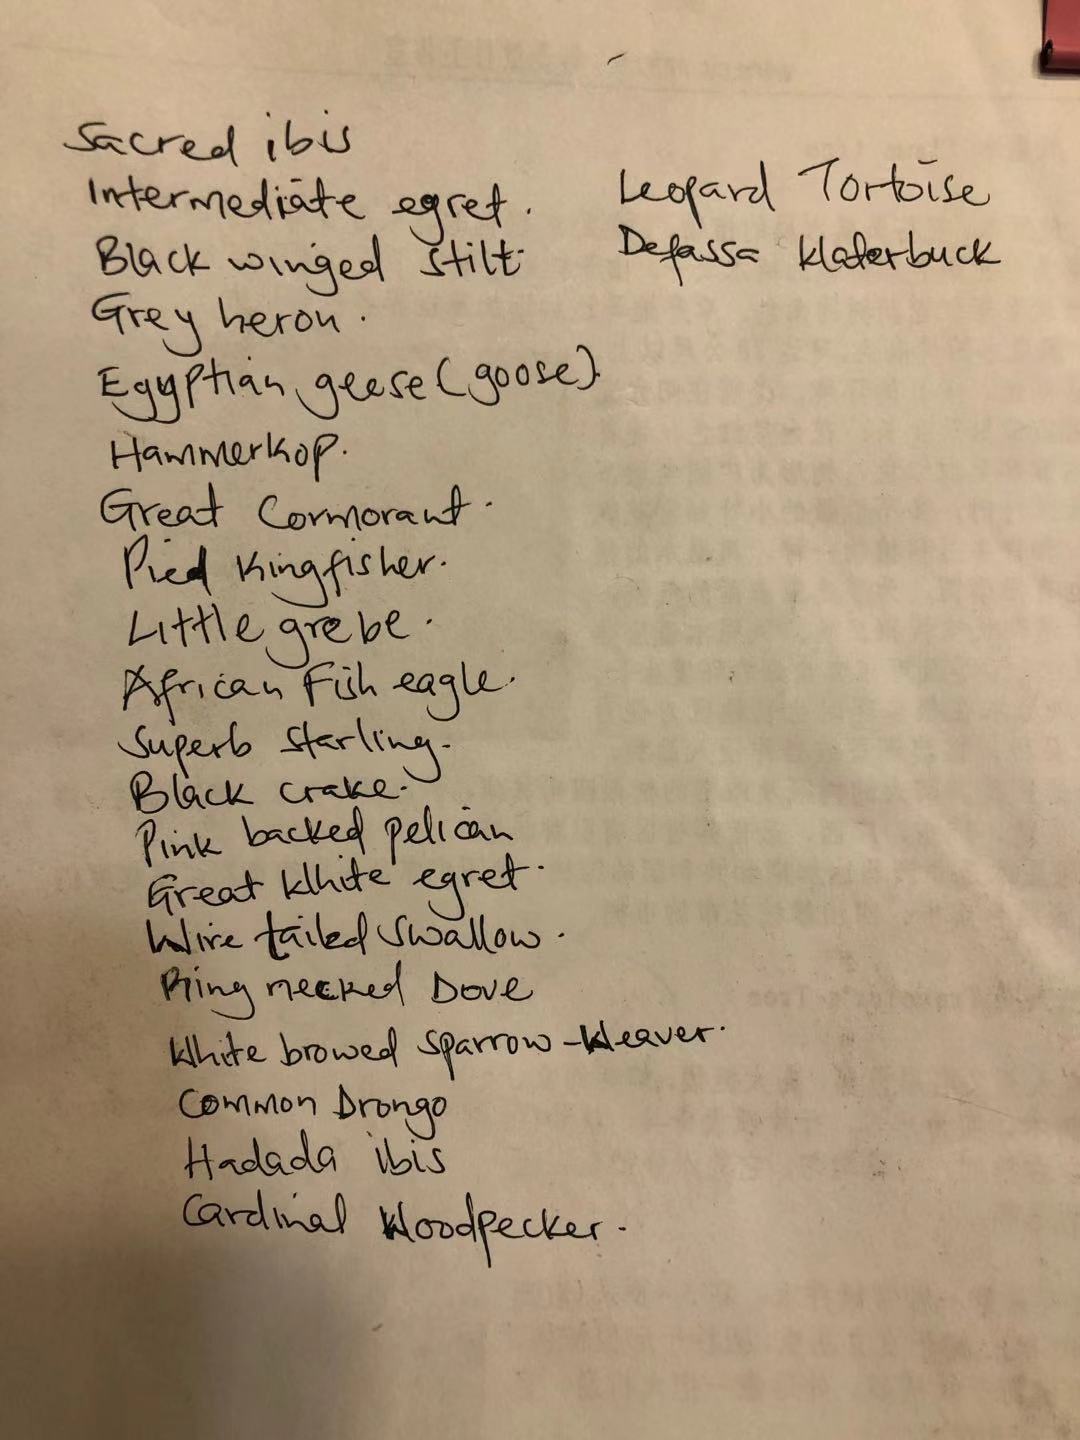 Sacred ibis
Intermediate egret.
Black winged stilt.
Grey heron.
Egyptian geese (goose).
Hammerkop.
Great Cormorant.
Pied Kingfisher.
Little grebe.
African Fish eagle.
Superb Starling.
Black crake.
Pink backed pelican
Great White egret.
Wire tailed Swallow.
Ring necked Dove
White browed Sparrow-Weaver.
Common Drongo
Hadada ibis
Cardinal Woodpecker.
Leopard Tortoise
Defassa Waterbuck